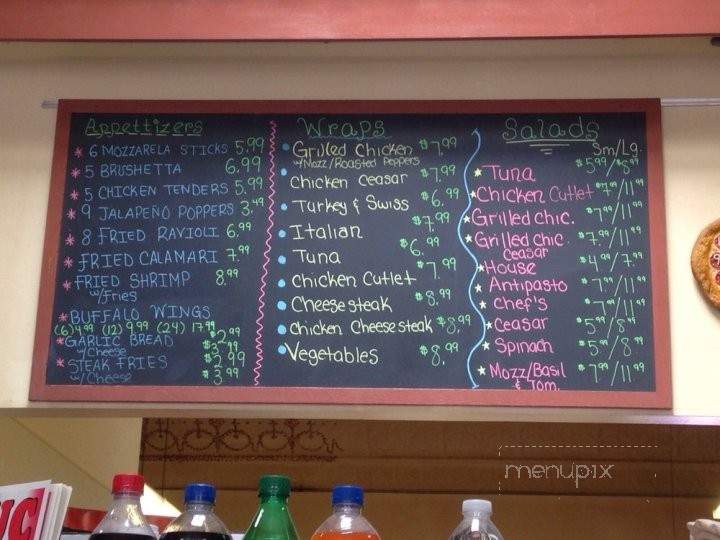 Appettizers
6 MOZZARELA STICKS 5.99
5 BRUSHETTA 6.99
5 CHICKEN TENDERS 5.99
9 JALAPEÑO POPPERS 3.49
8 FRIED RAVIOLI 6.99
FRIED CALAMARI 7.99
FRIED SHRIMP 8.99
w/Fries
BUFFALO WINGS
(6) 4.99 (12) 9.99 (24) 17.99
GARLIC BREAD $2.99
w/Cheese
STEAK FRIES $2.99
w/Cheese $3.99
Wraps
Grilled Chicken $7.99
w/Mozz/Roasted Peppers
Chicken Ceasar $7.99
Turkey & Swiss $6.99
Italian $7.99
Tuna $6.99
Chicken Cutlet $7.99
Cheesesteak $8.99
Chicken Cheesesteak $8.99
Vegetables $8.99
Salads
Sm/Lg.
Tuna $5.99/$8.99
Chicken Cutlet $7.99/11.99
Grilled chic. $7.99/11.99
Grilled chic. $7.99/11.99
ceasar
House $4.99/7.99
Antipasto $7.99/11.99
Chef's $7.99/11.99
Ceasar $5.99/8.99
Spinach $5.99/8.99
Mozz/Basil $7.99/11.99
& Tom.
menupix